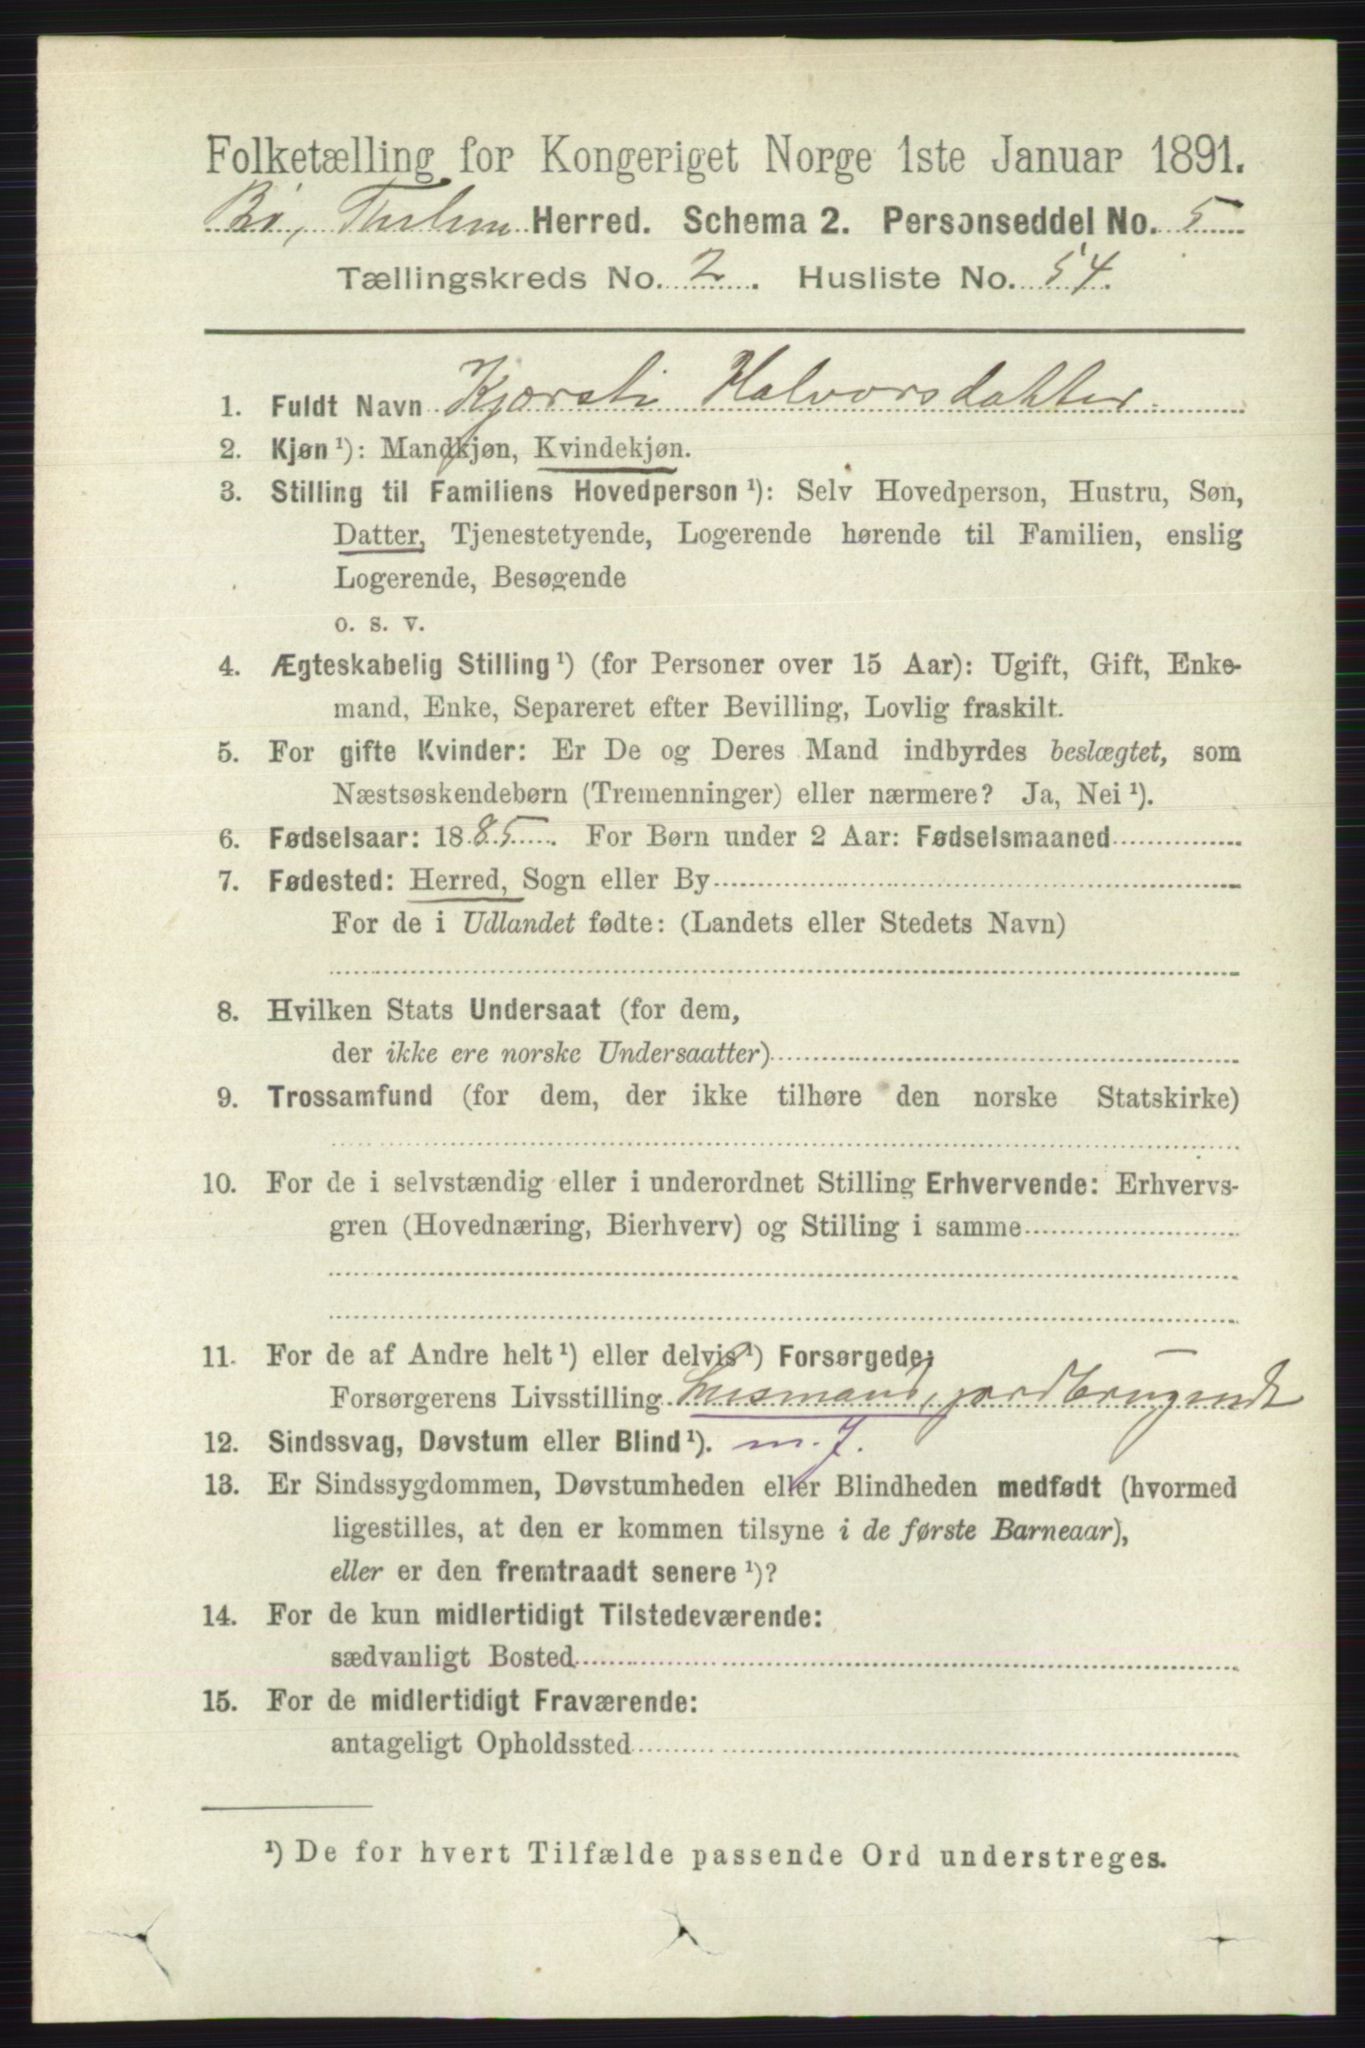 Folketælling for Kongeriget Norge 1ste Januar 1891.
Bø, Thelem Herred. Schema 2. Personseddel No. 5
Tællingskreds No. 2. Husliste No. 54.
1. Fuldt Navn Kjørsti Halvorsdatter
2. Kjøn ¹): Mandkjøn, Kvindekjøn.
3. Stilling til Familiens Hovedperson ¹): Selv Hovedperson, Hustru, Søn,
Datter, Tjenestetyende, Logerende hørende til Familien, enslig
Logerende, Besøgende
o. s. v.
4. Ægteskabelig Stilling ¹) (for Personer over 15 Aar): Ugift, Gift, Enke-
mand, Enke, Separeret efter Bevilling, Lovlig fraskilt.
5. For gifte Kvinder: Er De og Deres Mand indbyrdes beslægtet, som
Næstsøskendebørn (Tremenninger) eller nærmere? Ja, Nei ¹).
6. Fødselsaar: 1885. For Børn under 2 Aar: Fødselsmaaned
7. Fødested: Herred, Sogn eller By
For de i Udlandet fødte: (Landets eller Stedets Navn)
8. Hvilken Stats Undersaat (for dem,
der ikke ere norske Undersaatter)
9. Trossamfund (for dem, der ikke tilhøre den norske Statskirke)
10. For de i selvstændig eller i underordnet Stilling Erhvervende: Erhvervs-
gren (Hovednæring, Bierhverv) og Stilling i samme
11. For de af Andre helt ¹) eller delvis ¹) Forsørgede:
Forsørgerens Livsstilling Husmand, jordbrugende
12. Sindssvag, Døvstum eller Blind ¹). m. J.
13. Er Sindssygdommen, Døvstumheden eller Blindheden medfødt (hvormed
ligestilles, at den er kommen tilsyne i de første Barneaar),
eller er den fremtraadt senere ¹)?
14. For de kun midlertidigt Tilstedeværende:
sædvanligt Bosted
15. For de midlertidigt Fraværende:
antageligt Opholdssted
¹) De for hvert Tilfælde passende Ord understreges.